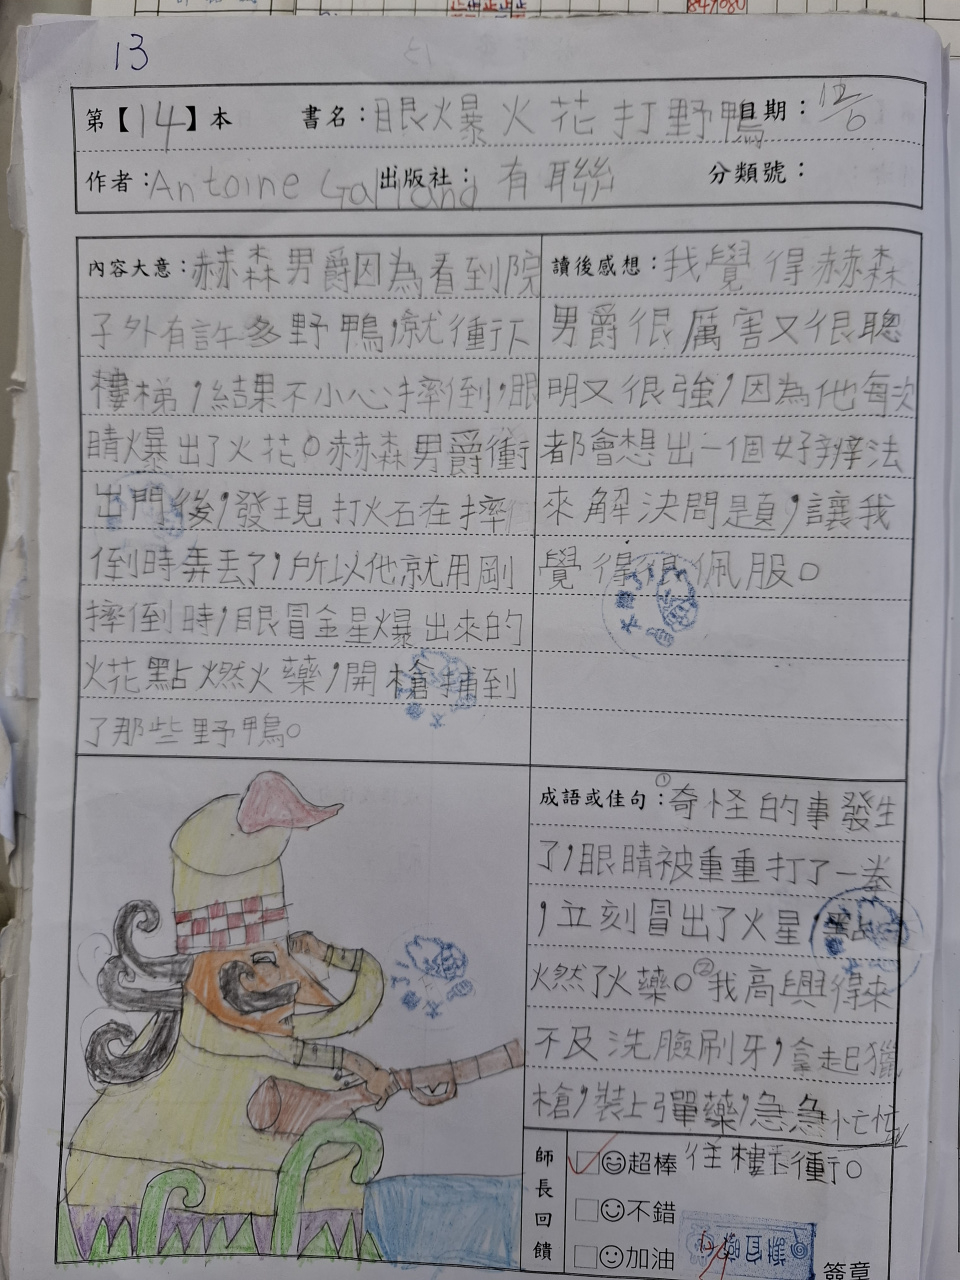 13
第【14】本 書名：眼爆火花打野鴨 日期：12/6
作者：Antoine Galland 出版社：有聯 分類號：
內容大意：赫森男爵因為看到院
子外有許多野鴨，就衝下
樓梯，結果不小心摔倒，眼
睛爆出了火花。赫森男爵衝
出門後，發現打火石在摔
倒時弄丟了，所以他就用剛
摔倒時，眼冒金星爆出來的
火花點燃火藥，開槍捕到
了那些野鴨。
讀後感想：我覺得赫森
男爵很厲害又很聰
明又很強，因為他每次
都會想出一個好辦法
來解決問題，讓我
覺得很佩服。
成語或佳句：①奇怪的事發生
了，眼睛被重重打了一拳
，立刻冒出了火星，點
燃了火藥。②我高興得來
不及洗臉刷牙，拿起獵
槍，裝上彈藥，急急忙忙
往樓下衝。
師長回饋
超棒
不錯
加油
簽章